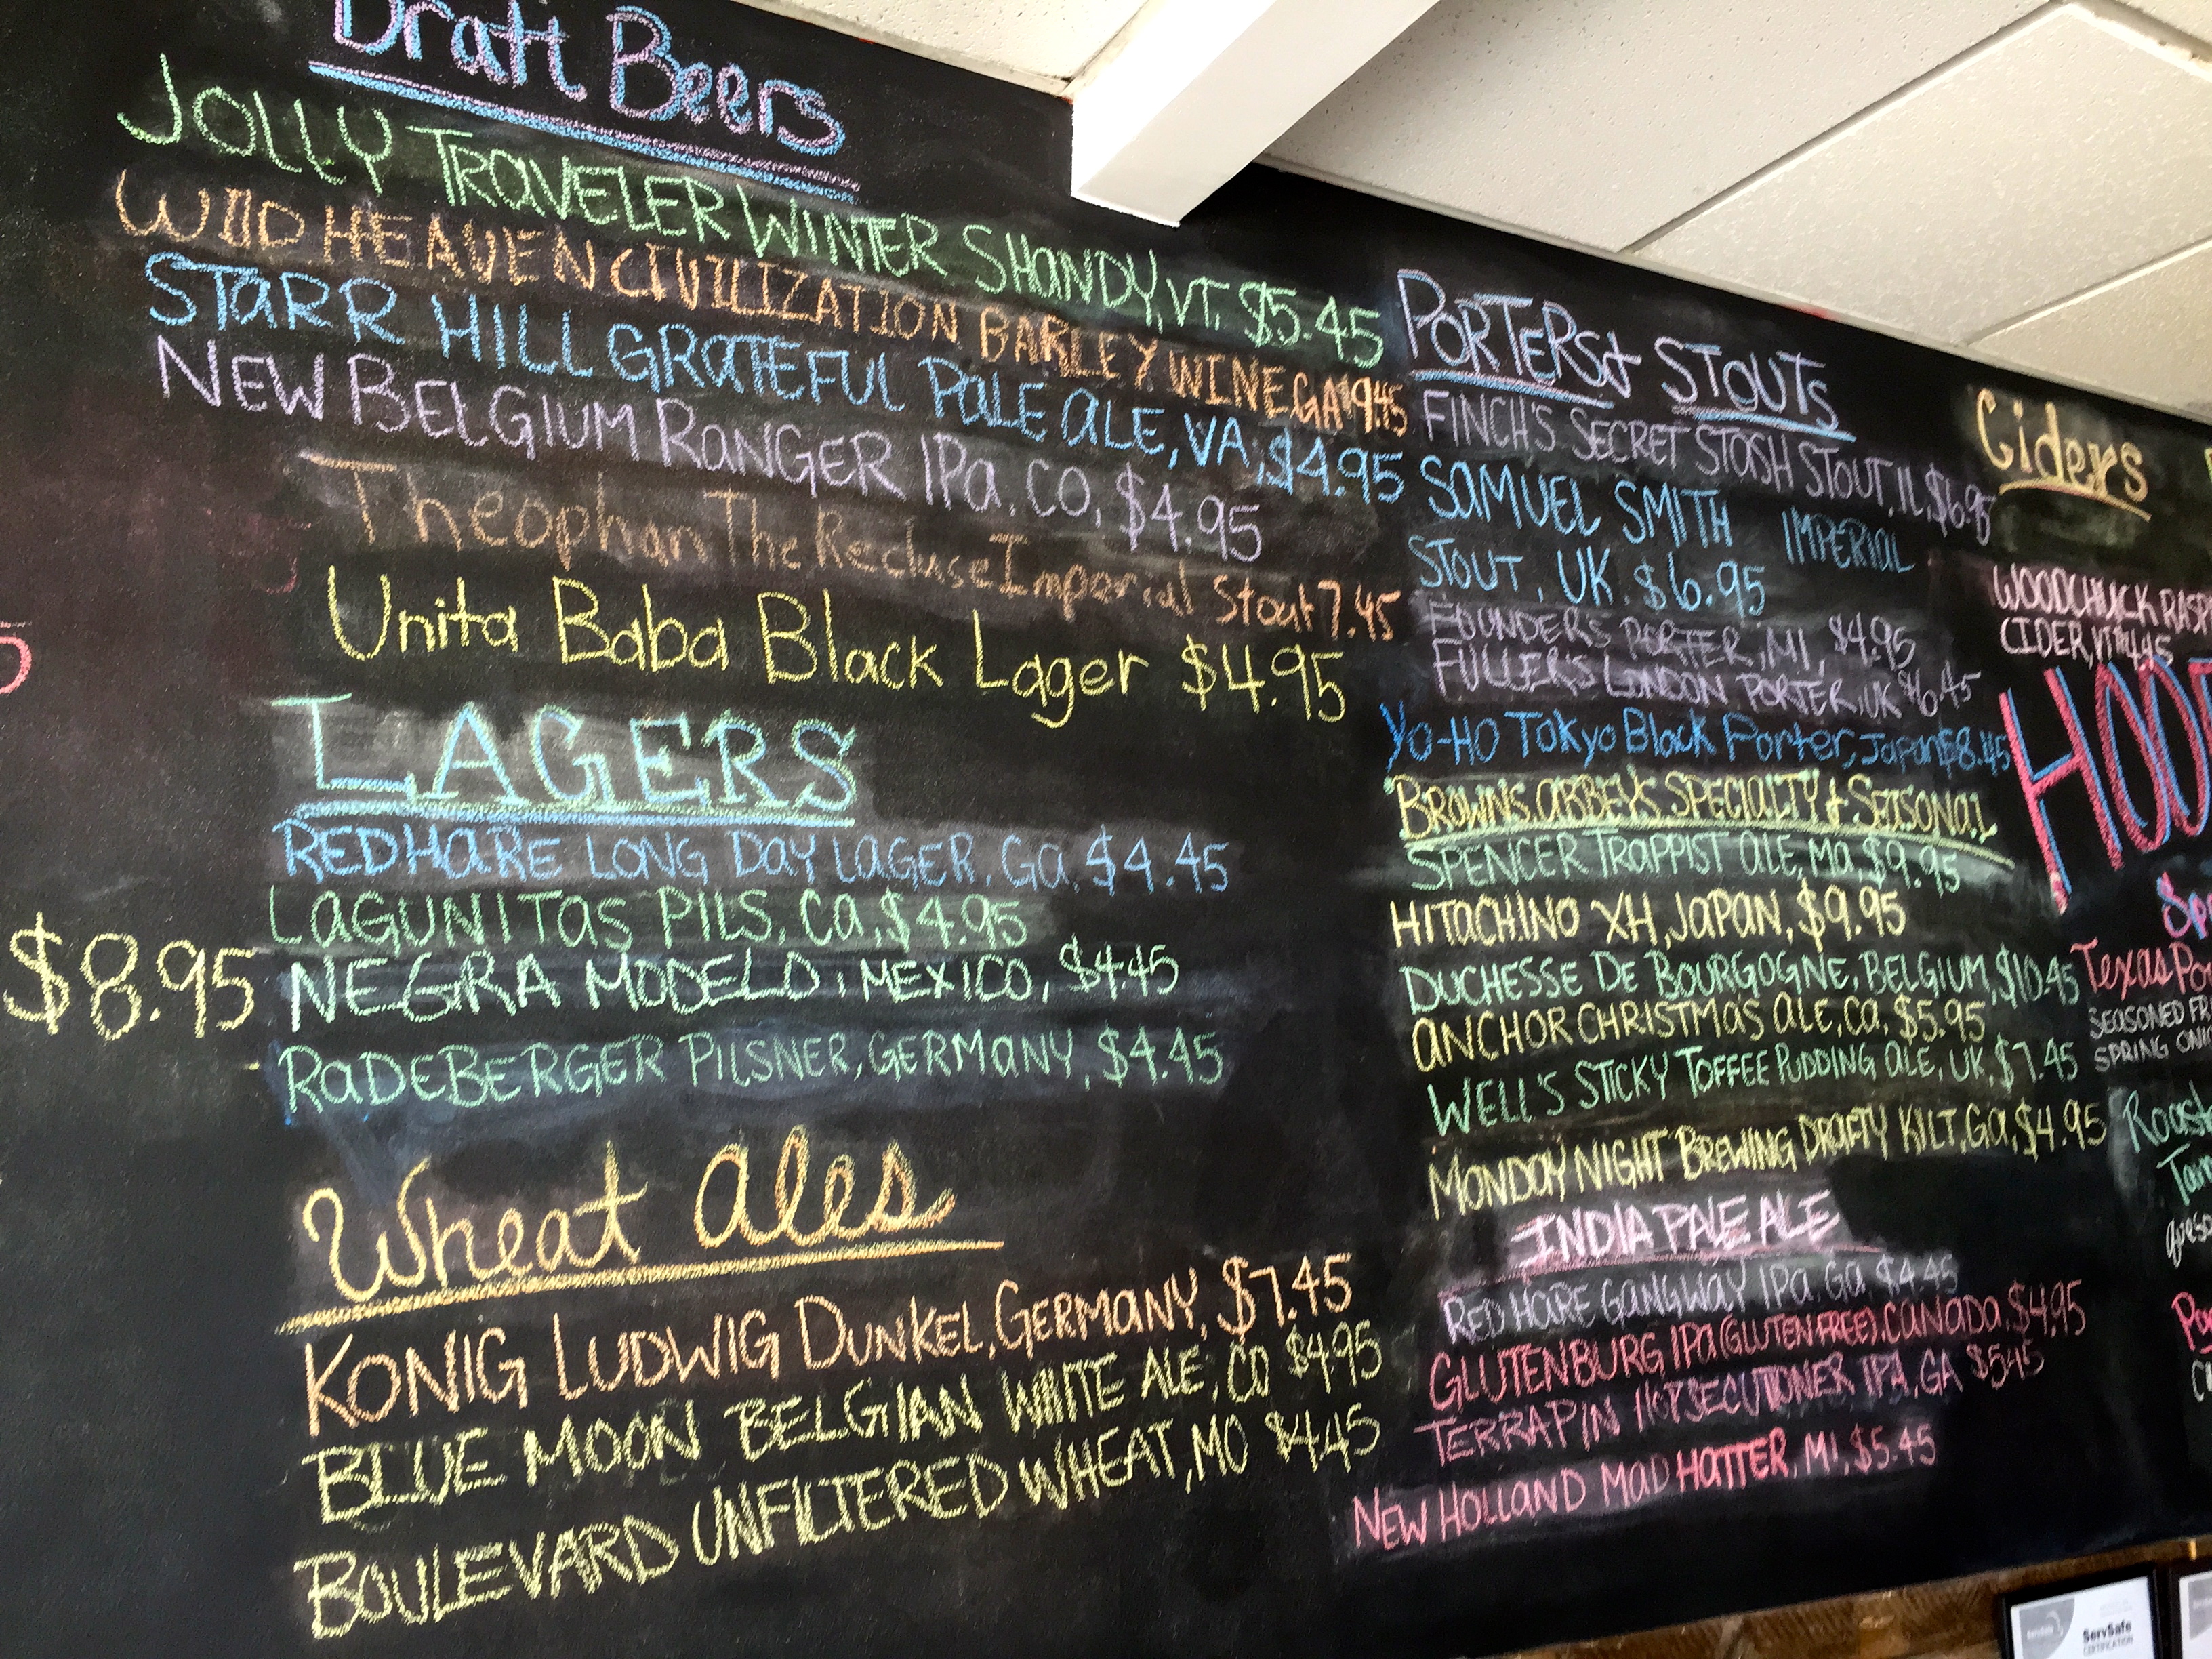 Draft Beers
JOLLY TRAVELER WINTER SHANDY, VT, $5.45
WIID HEAVEN CIVILIZATION BARLEY WINE GA $9.45
STARR HILL GRATEFUL PALE ALE, VA, $4.95
NEW BELGIUM RANGER IPA, CO, $4.95
Theophan The Recluse Imperial Stout 7.45
Unita Baba Black Lager $4.95
LAGERS
RED HARE LONG DAY LAGER, GA, $4.45
LAGUNITAS PILS, CA, $4.95
NEGRA MODELO, MEXICO, $4.45
$8.95
RADEBERGER PILSNER, GERMANY, $4.45
Wheat ales
KONIG LUDWIG DUNKEL, GERMANY, $7.45
BLUE MOON BELGIAN WHITE ALE, CO $4.95
BOULEVARD UNFILTERED WHEAT, MO $4.45
PORTERS & STOUTS
FINCH'S SECRET STASH STOUT, IL, $6.95
SAMUEL SMITH IMPERIAL
STOUT, UK. $6.95
FOUNDERS PORTER, MI, $4.95
FULLER'S LONDON PORTER, UK $6.45
Yo-HO Tokyo Black Porter, Japan $8.45
BROWNS, ABBEYS, SPECIALTY & SEASONAL
SPENCER TRAPPIST ALE, MA, $9.95
HITACHINO XH, JAPAN, $9.95
DUCHESSE DE BOURGOGNE, BELGIUM, $10.45
ANCHOR CHRISTMAS ALE, CA, $5.95
WELL'S STICKY TOFFEE PUDDING ALE, UK, $7.45
MONDAY NIGHT BREWING DRAFTY KILT, GA, $4.95
INDIA PALE ALE
RED HARE GANGWAY IPA, GA $4.45
GLUTENBURG IPA (GLUTEN FREE), CANADA, $4.95
TERRAPIN HOPSECUTIONER IPA, GA $5.45
NEW HOLLAND MAD HATTER, MI, $5.45
Ciders
WOODCHUCK RASP
CIDER, VT 4.45
HOO
Sp
Texas Po
SEASONED FR
SPRING ONI
Roast
Tom
queso
ServSafe
CERTIFICATION